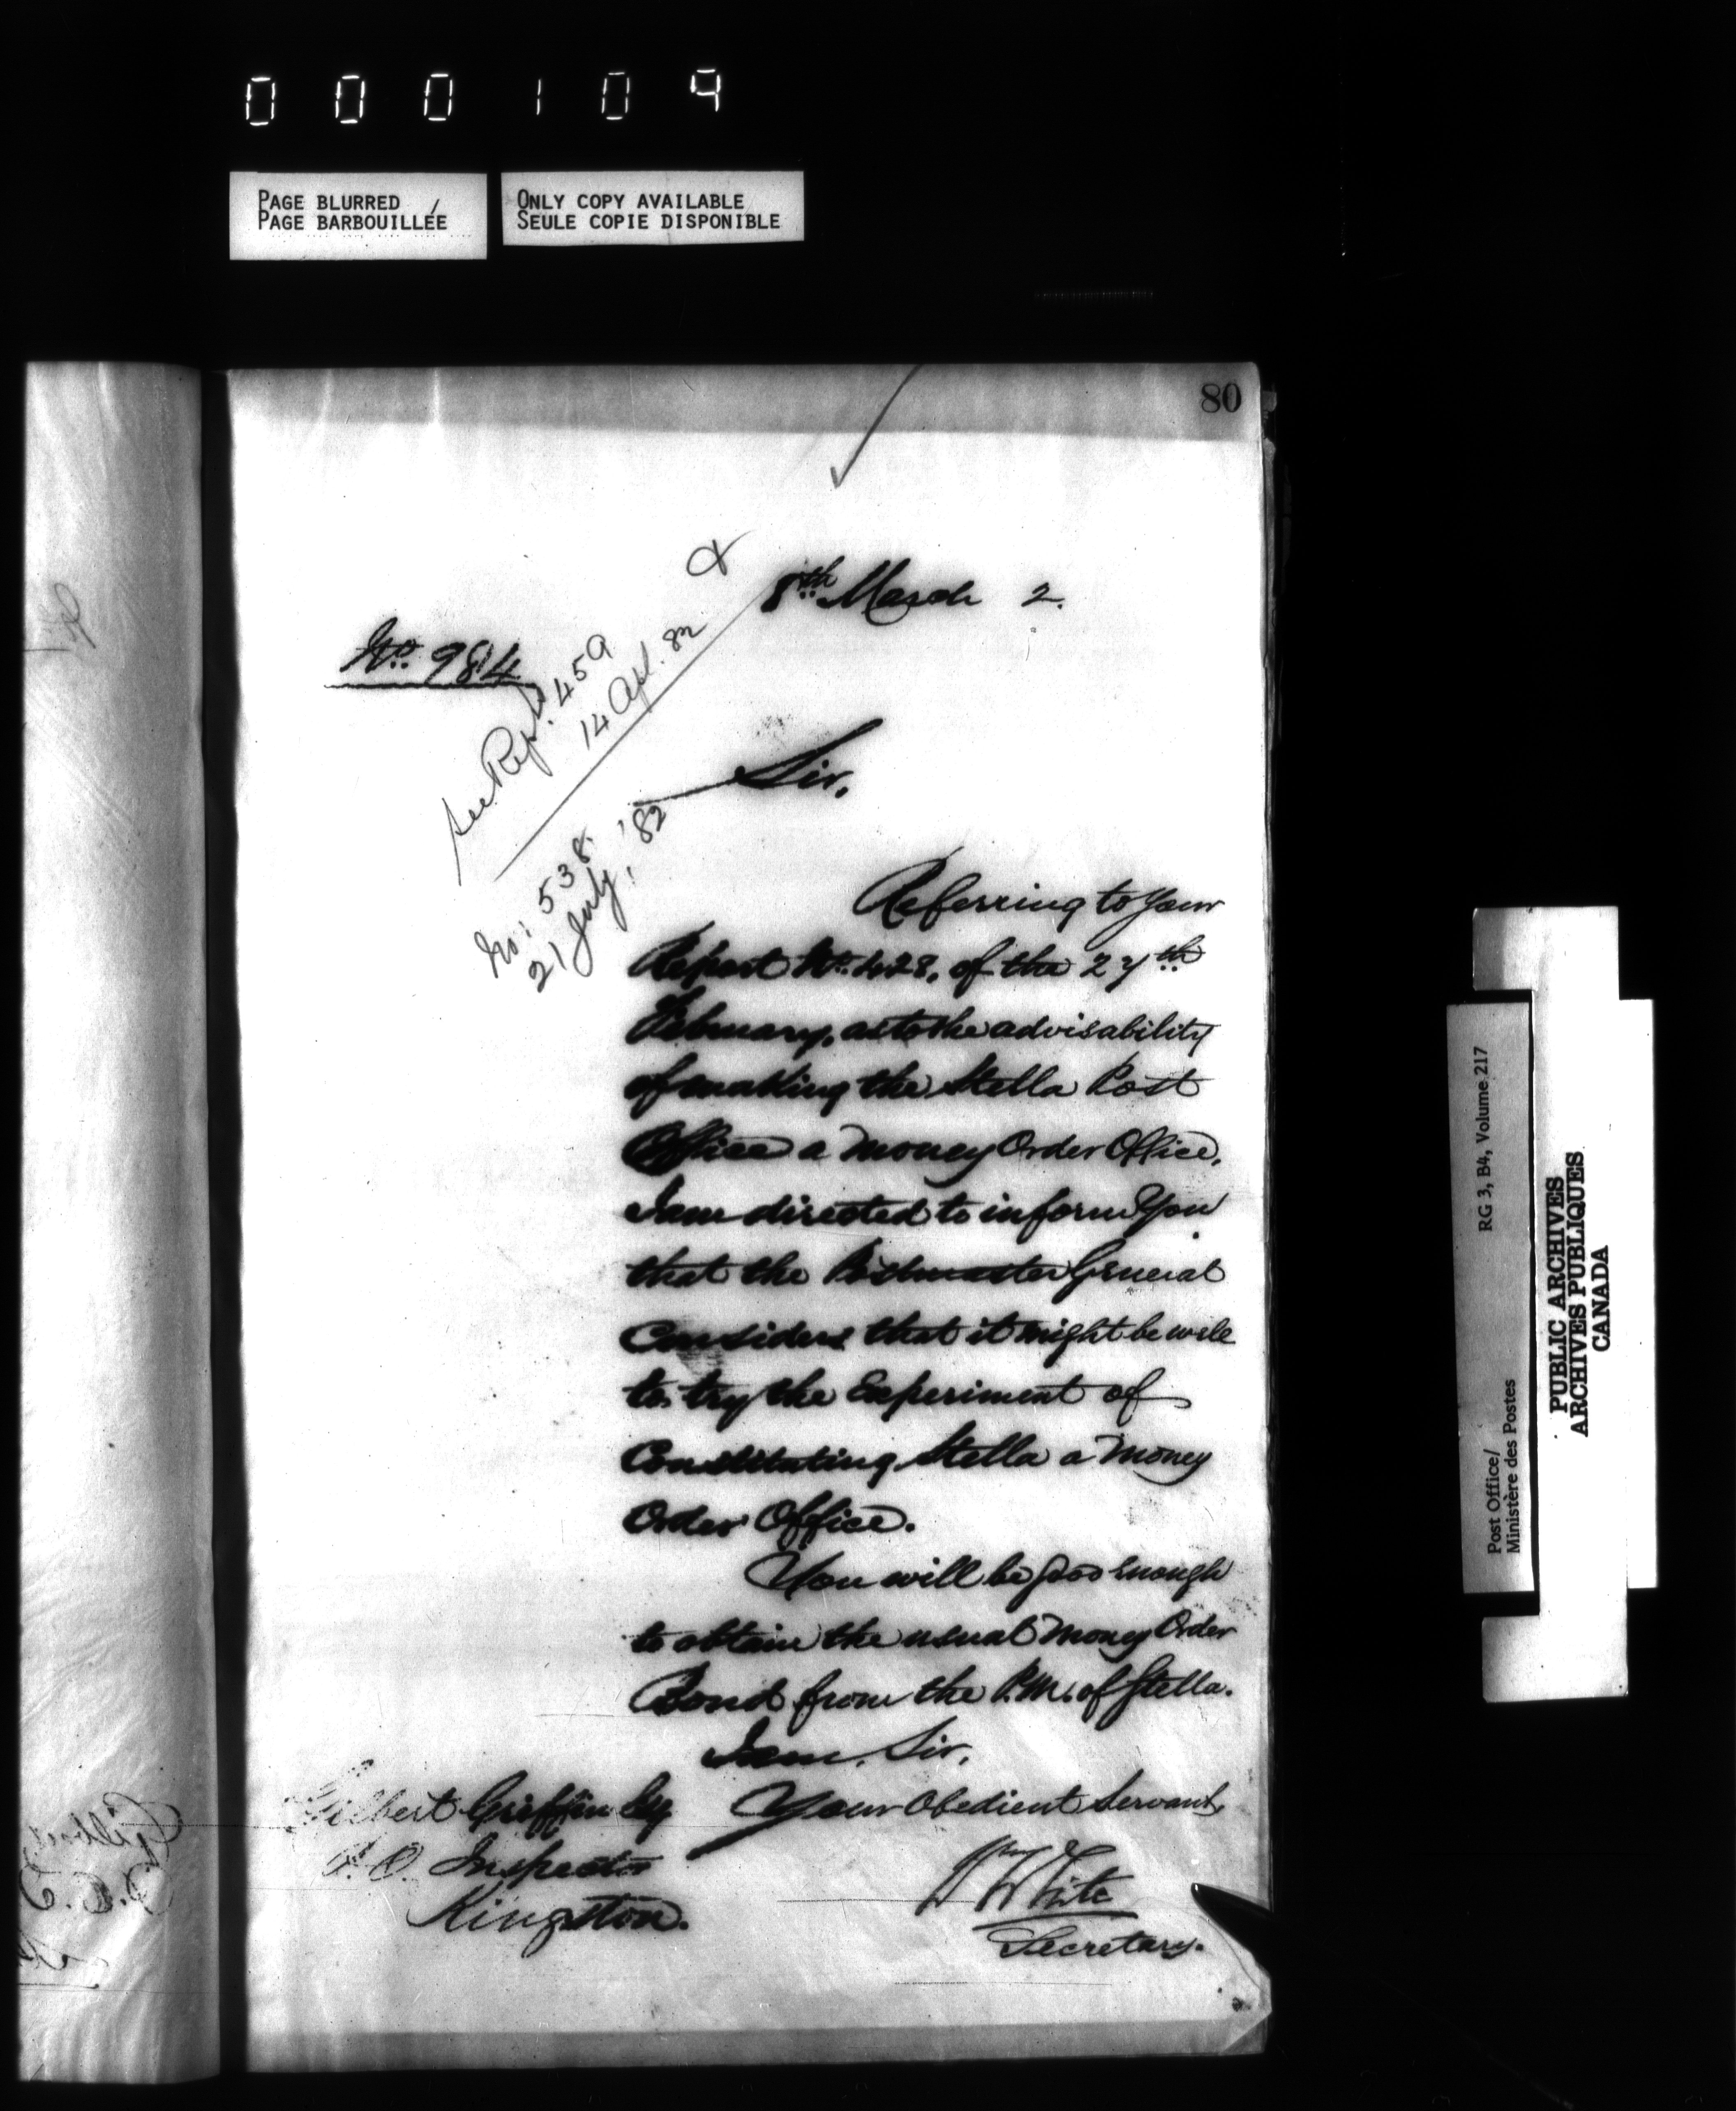 000109
PAGE BLURRED /
PAGE BARBOUILLÉE
ONLY COPY AVAILABLE
SEULE COPIE DISPONIBLE
80
8th March 2.
No. 984
see Rept. 459
14 Apl. 82
&
No: 538
21 July, '82
Sir,
Referring to your
Report No. 428, of the 27th
February, as to the advisability
of making the Stella Post
Office a Money Order Office,
I am directed to inform You
that the Postmaster General
Considers that it might be well
to try the Experiment of
Constituting Stella a Money
Order Office.
You will be good enough
to obtain the usual Money Order
Bond from the P.M. of Stella.
I am, Sir,
Your Obedient Servant,
Gilbert Griffin Esq
P.O. Inspector
Kingston.
Wm White
Secretary.
RG 3, B4, Volume 217
Post Office/
Ministère des Postes
PUBLIC ARCHIVES
ARCHIVES PUBLIQUES
CANADA